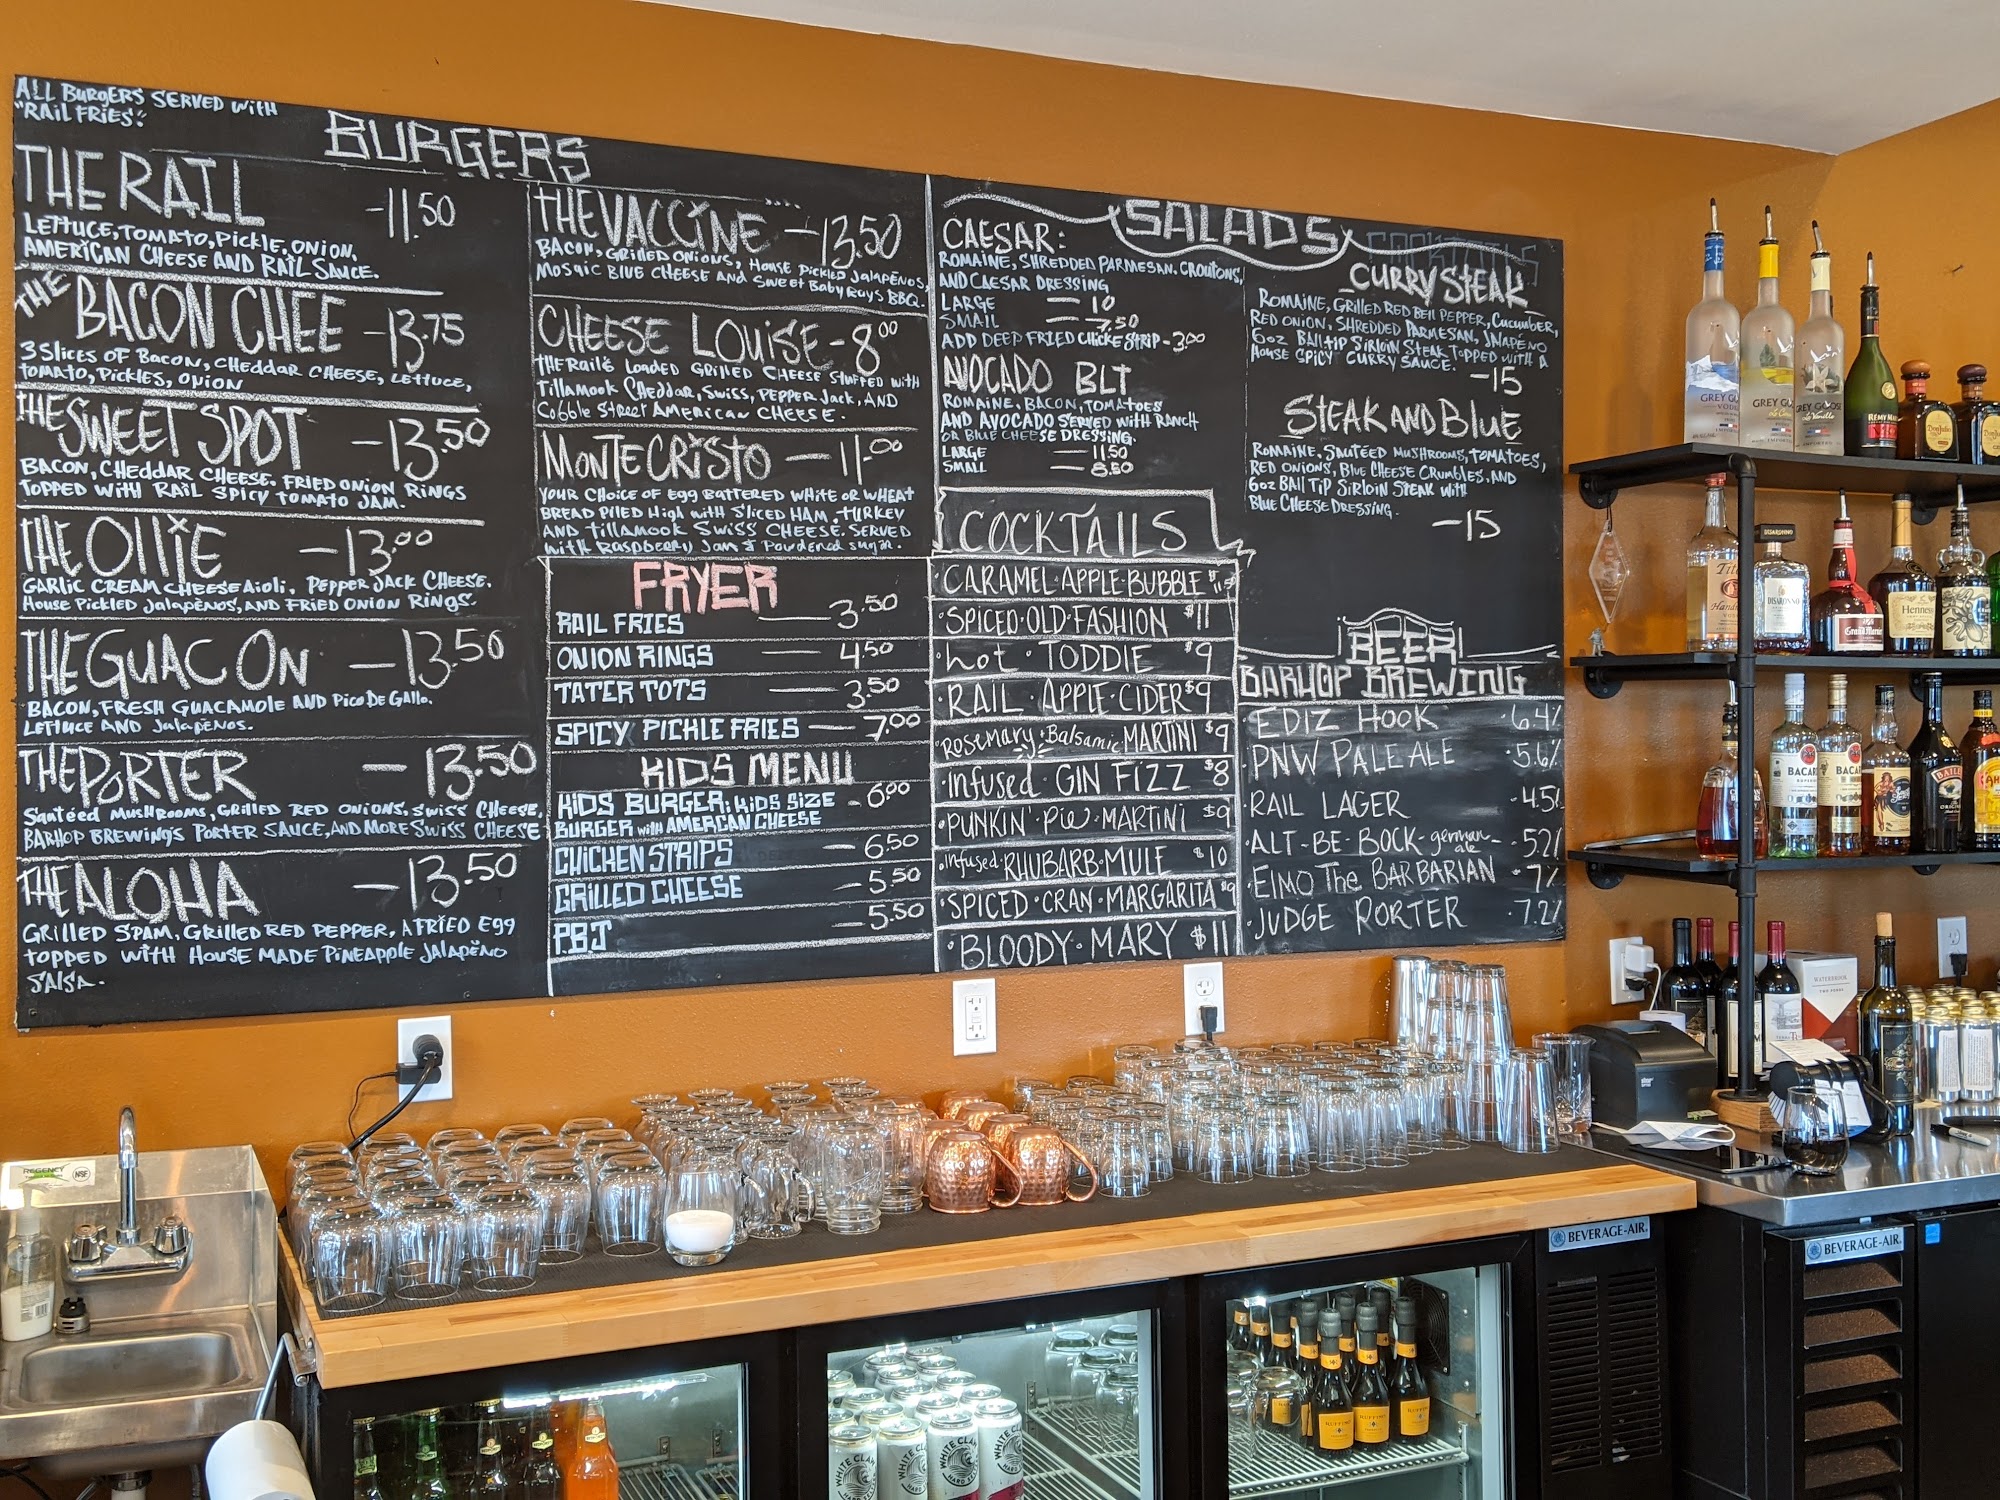 ALL BURGERS SERVED WITH
"RAIL FRIES".
BURGERS
THE RAIL -11.50
LETTUCE, TOMATO, PICKLE, ONION,
AMERICAN CHEESE AND RAIL SAUCE.
THE BACON CHEE -13.75
3 SLICES OF BACON, CHEDDAR CHEESE, LETTUCE,
TOMATO, PICKLES, ONION
THE SWEET SPOT -13.50
BACON, CHEDDAR CHEESE, FRIED ONION RINGS
TOPPED WITH RAIL SPICY TOMATO JAM.
THE OLLIE -13.00
GARLIC CREAM CHEESE AIOLI, PEPPER JACK CHEESE,
HOUSE PICKLED JALAPEÑOS, AND FRIED ONION RINGS.
THE GUAC ON -13.50
BACON, FRESH GUACAMOLE AND PICO DE GALLO,
LETTUCE AND JALAPEÑOS.
THE PORTER -13.50
SAUTÉED MUSHROOMS, GRILLED RED ONIONS, SWISS CHEESE,
BARHOP BREWING'S PORTER SAUCE, AND MORE SWISS CHEESE
THE ALOHA -13.50
GRILLED SPAM, GRILLED RED PEPPER, A FRIED EGG
TOPPED WITH HOUSE MADE PINEAPPLE JALAPEÑO
SALSA.
THE VACCINE -13.50
BACON, GRILLED ONIONS, HOUSE PICKLED JALAPEÑOS,
MOSAIC BLUE CHEESE AND SWEET BABY RAYS BBQ.
CHEESE LOUISE - 8.00
THE RAIL'S LOADED GRILLED CHEESE STUFFED WITH
TILLAMOOK CHEDDAR, SWISS, PEPPER JACK, AND
COBBLE STREET AMERICAN CHEESE.
MONTE CRISTO - 11.00
YOUR CHOICE OF EGG BATTERED WHITE OR WHEAT
BREAD PILED HIGH WITH SLICED HAM, TURKEY
AND TILLAMOOK SWISS CHEESE. SERVED
WITH RASPBERRY JAM & POWDERED SUGAR.
FRYER
RAIL FRIES 3.50
ONION RINGS 4.50
TATER TOTS 3.50
SPICY PICKLE FRIES 7.00
KIDS MENU
KIDS BURGER: KIDS SIZE - 6.00
BURGER WITH AMERCAN CHEESE
CHICKEN STRIPS - 6.50
GRILLED CHEESE - 5.50
PBJ - 5.50
SALADS
CAESAR:
ROMAINE, SHREDDED PARMESAN, CROUTONS,
AND CAESAR DRESSING
LARGE - 10
SMALL - 7.50
ADD DEEP FRIED CHICKE STRIP - 3.00
AVOCADO BLT
ROMAINE, BACON, TOMATOES
AND AVOCADO SERVED WITH RANCH
OR BLUE CHEESE DRESSING.
LARGE - 11.50
SMALL - 8.50
COCKTAILS
CURRY STEAK
ROMAINE, GRILLED RED BELL PEPPER, CUCUMBER,
RED ONION, SHREDDED PARMESAN, JALAPEÑO
6oz BALL TIP SIRLOIN STEAK TOPPED WITH A
HOUSE SPICY CURRY SAUCE. -15
STEAK AND BLUE
ROMAINE, SAUTÉED MUSHROOMS, TOMATOES,
RED ONIONS, BLUE CHEESE CRUMBLES, AND
6oz BALL TIP SIRLOIN STEAK WITH
BLUE CHEESE DRESSING.
-15
COCKTAILS
·CARAMEL·APPLE·BUBBLE
·SPICED·OLD·FASHION $11
·hot·TODDIE $9
·RAIL·APPLE·CIDER $9
·Rosemary·Balsamic MARTINI $9
·infused·GIN FIZZ $8
·PUNKIN' Pie·MARTINI $9
·infused·RHUBARB·MULE $10
·SPICED·CRAN·MARGARITA $9
·BLOODY·MARY $11
BEER
BARHOP BREWING
·EDIZ HOOK ·6.4%
·PNW PALE ALE ·5.6%
·RAIL LAGER ·4.5%
·ALT-BE-BOCK-german-ale ·5.2%
·ELMO THE BARBARIAN ·7%
·JUDGE PORTER ·7.2%
GREY GOOSE
VODKA
GREY GOOSE
GREY GOOSE
La Vanille
RÉMY MARTIN
Don Julio
Don Julio
Tito's
Handmade
DISARONNO
DISARONNO
Grand Marnier
Hennessy
BACARDI
BACARDI
BAILEYS
WATERBROOK
star
REGENCY
NSF
BEVERAGE-AIR
BEVERAGE-AIR
WHITE CLAW
HARD SELTZER
WHITE CLAW
WHITE CLAW
WHITE CLAW
RUFFINO
RUFFINO
RUFFINO